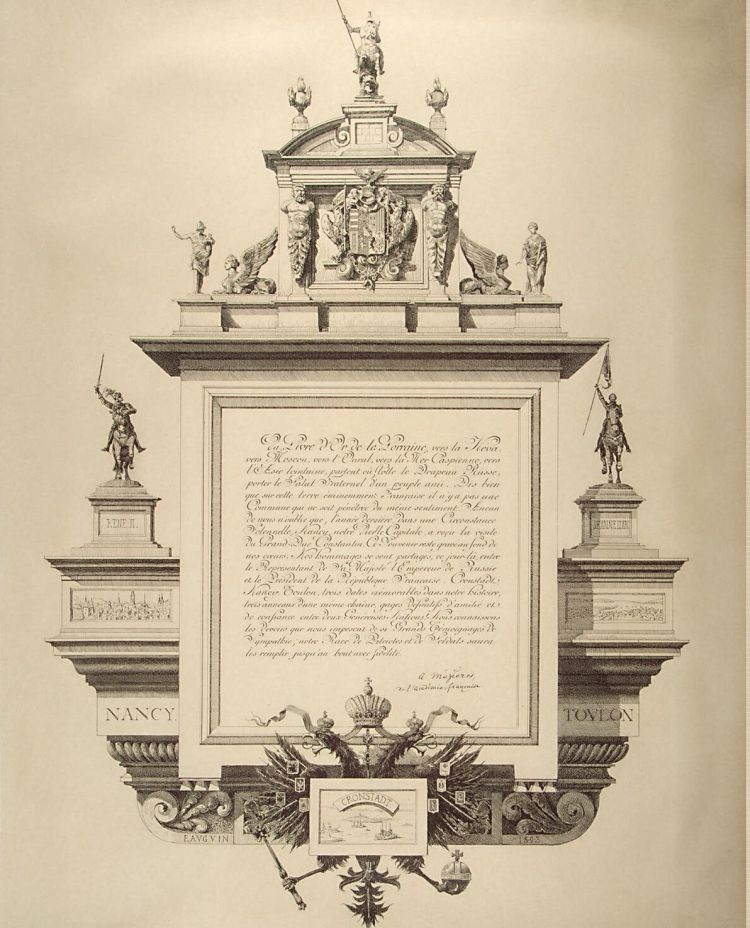 Le Livre d'Or de la Lorraine, vers la Neva,
vers Moscou, vers l'Oural, vers la Mer Caspienne, vers
l'Asie lointaine, partout où flotte le Drapeau Russe,
porter le Salut Fraternel d'un peuple ami. Dis bien
que sur cette terre éminemment Française il n'y a pas une
Commune qui ne soit pénétrée du même sentiment. Aucun
de nous n'oublie que, l'année dernière dans une Circonstance
Solennelle, Nancy, notre Vieille Capitale, a reçu la visite
du Grand-Duc Constantin. Ce Souvenir reste gravé au fond de
nos cœurs. Nos hommages se sont partagés, ce jour-là, entre
le Représentant de Sa Majesté l'Empereur de Russie
et le Président de la République Française. Cronstadt,
Nancy, Toulon, trois dates mémorables dans notre histoire,
trois anneaux d'une même chaîne, gages définitifs d'amitié et
de confiance entre deux Généreuses Nations. Nous connaissons
les devoirs que nous imposent de si Grands Témoignages de
Sympathie; notre Race de Patriotes et de Soldats saura
les remplir jusqu'au bout avec fidélité.
A. Mézières,
de l'Académie française
RENE II.
JEANNE D'ARC
NANCY
TOVLON
CRONSTADT
E. AVGVIN
1893